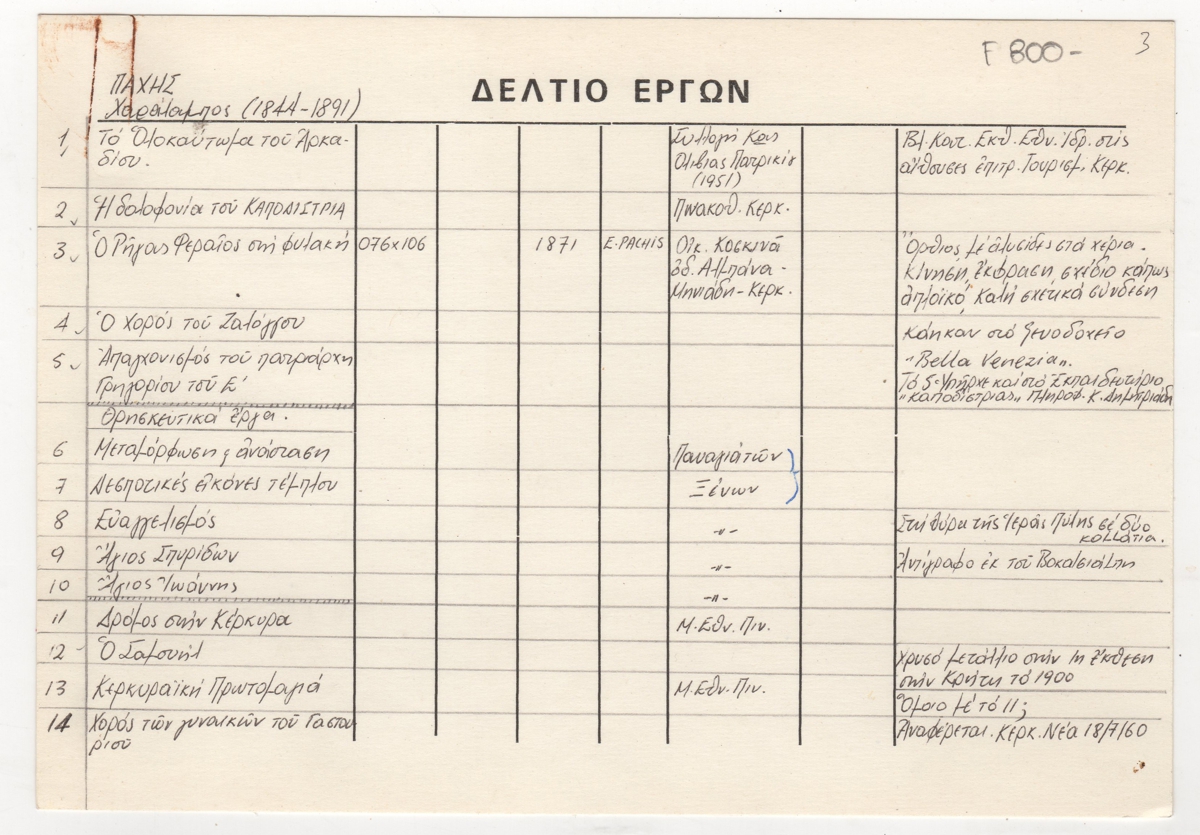 F 800-
3
ΠΑΧΗΣ
Χαράλαμπος (1844-1891)
ΔΕΛΤΙΟ ΕΡΓΩΝ
1, Τό Ὁλοκαύτωμα τοῦ Ἀρκα-
δίου.
Συλλογή Κας
Ολίβιας Πατρικίου
(1951)
Βλ. Κατ. Εκθ. Εθν. Ἱδρ. στίς
αἴθουσες ἐπιτρ. Τουρισμ. Κερκ.
2 Ἡ δολοφονία τοῦ ΚΑΠΟΔΙΣΤΡΙΑ
Πινακοθ. Κερκ.
3 Ὁ Ρήγας Φεραῖος στή φυλακή
076x106
1871
E. PACHIS
Οἰκ. Κοσκινᾶ
ὁδ. Αλμπάνα-
Μηνιάδη-Κερκ.
Ὄρθιος μέ ἁλυσίδες στά χέρια.
κίνηση, ἔκφραση, σχέδιο κάπως
ἁπλοϊκό, καλή σχετικά σύνδεση
4 Ὁ Χορός τοῦ Ζαλόγγου
κάηκαν στό ξενοδοχεῖο
5 Ἀπαγχονισμός τοῦ πατριάρχη
Γρηγορίου τοῦ Ε'
"Bella Venezia".
Τό 5 Ὑπῆρχε καί στό Ἐκπαιδευτήριο
"καποδίστριας" Πληροφ. Κ. Δημητριάδη
Θρησκευτικά ἔργα.
6 Μεταμόρφωση ἤ ἀνάσταση
Παναγιάτῶν
7 Δεσποτικές εἰκόνες τέμπλου
Ξένων
8 Εὐαγγελισμός
-"-
Στή θύρα τῆς Ἱερᾶς Πύλης σέ δύο
κομμάτια.
9 Ἅγιος Σπυρίδων
-"-
Ἀντίγραφο ἐκ τοῦ
10 Ἅγιος Ἰωάννης
-"-
11 Δρόμος στήν Κέρκυρα
Μ. Εθν. Πιν.
12 Ὁ Σαμουήλ
Χρυσό μετάλλιο στήν 1η ἔκθεση
στήν Κρήτη τό 1900
13 Κερκυραϊκή Πρωτομαγιά
Μ. Εθν. Πιν.
Ὅμοιο μέ τό 11;
14 Χορός τῶν γυναικῶν τοῦ Γαστου
ρίου
Ἀναφέρεται. Κέρκ. Νέα 18/7/60